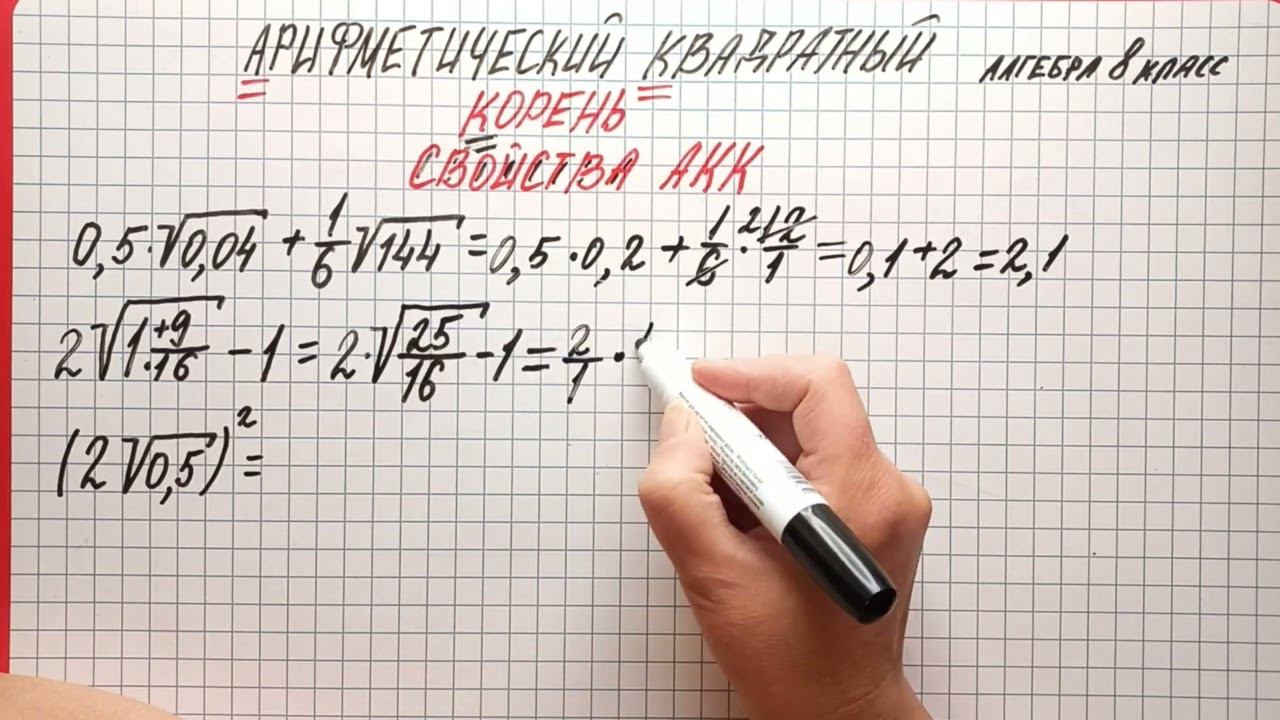 АРИФМЕТИЧЕСКИЙ КВАДРАТНЫЙ
АЛГЕБРА 8 КЛАСС
КОРЕНЬ
СВОЙСТВА АКК
0,5·√0,04 + 1/6 √144 = 0,5·0,2 + 1/6 · 2 12/1 = 0,1+2 = 2,1
2√1 +9/·16 - 1 = 2·√25/16 - 1 = 2/1 ·
(2√0,5)² =